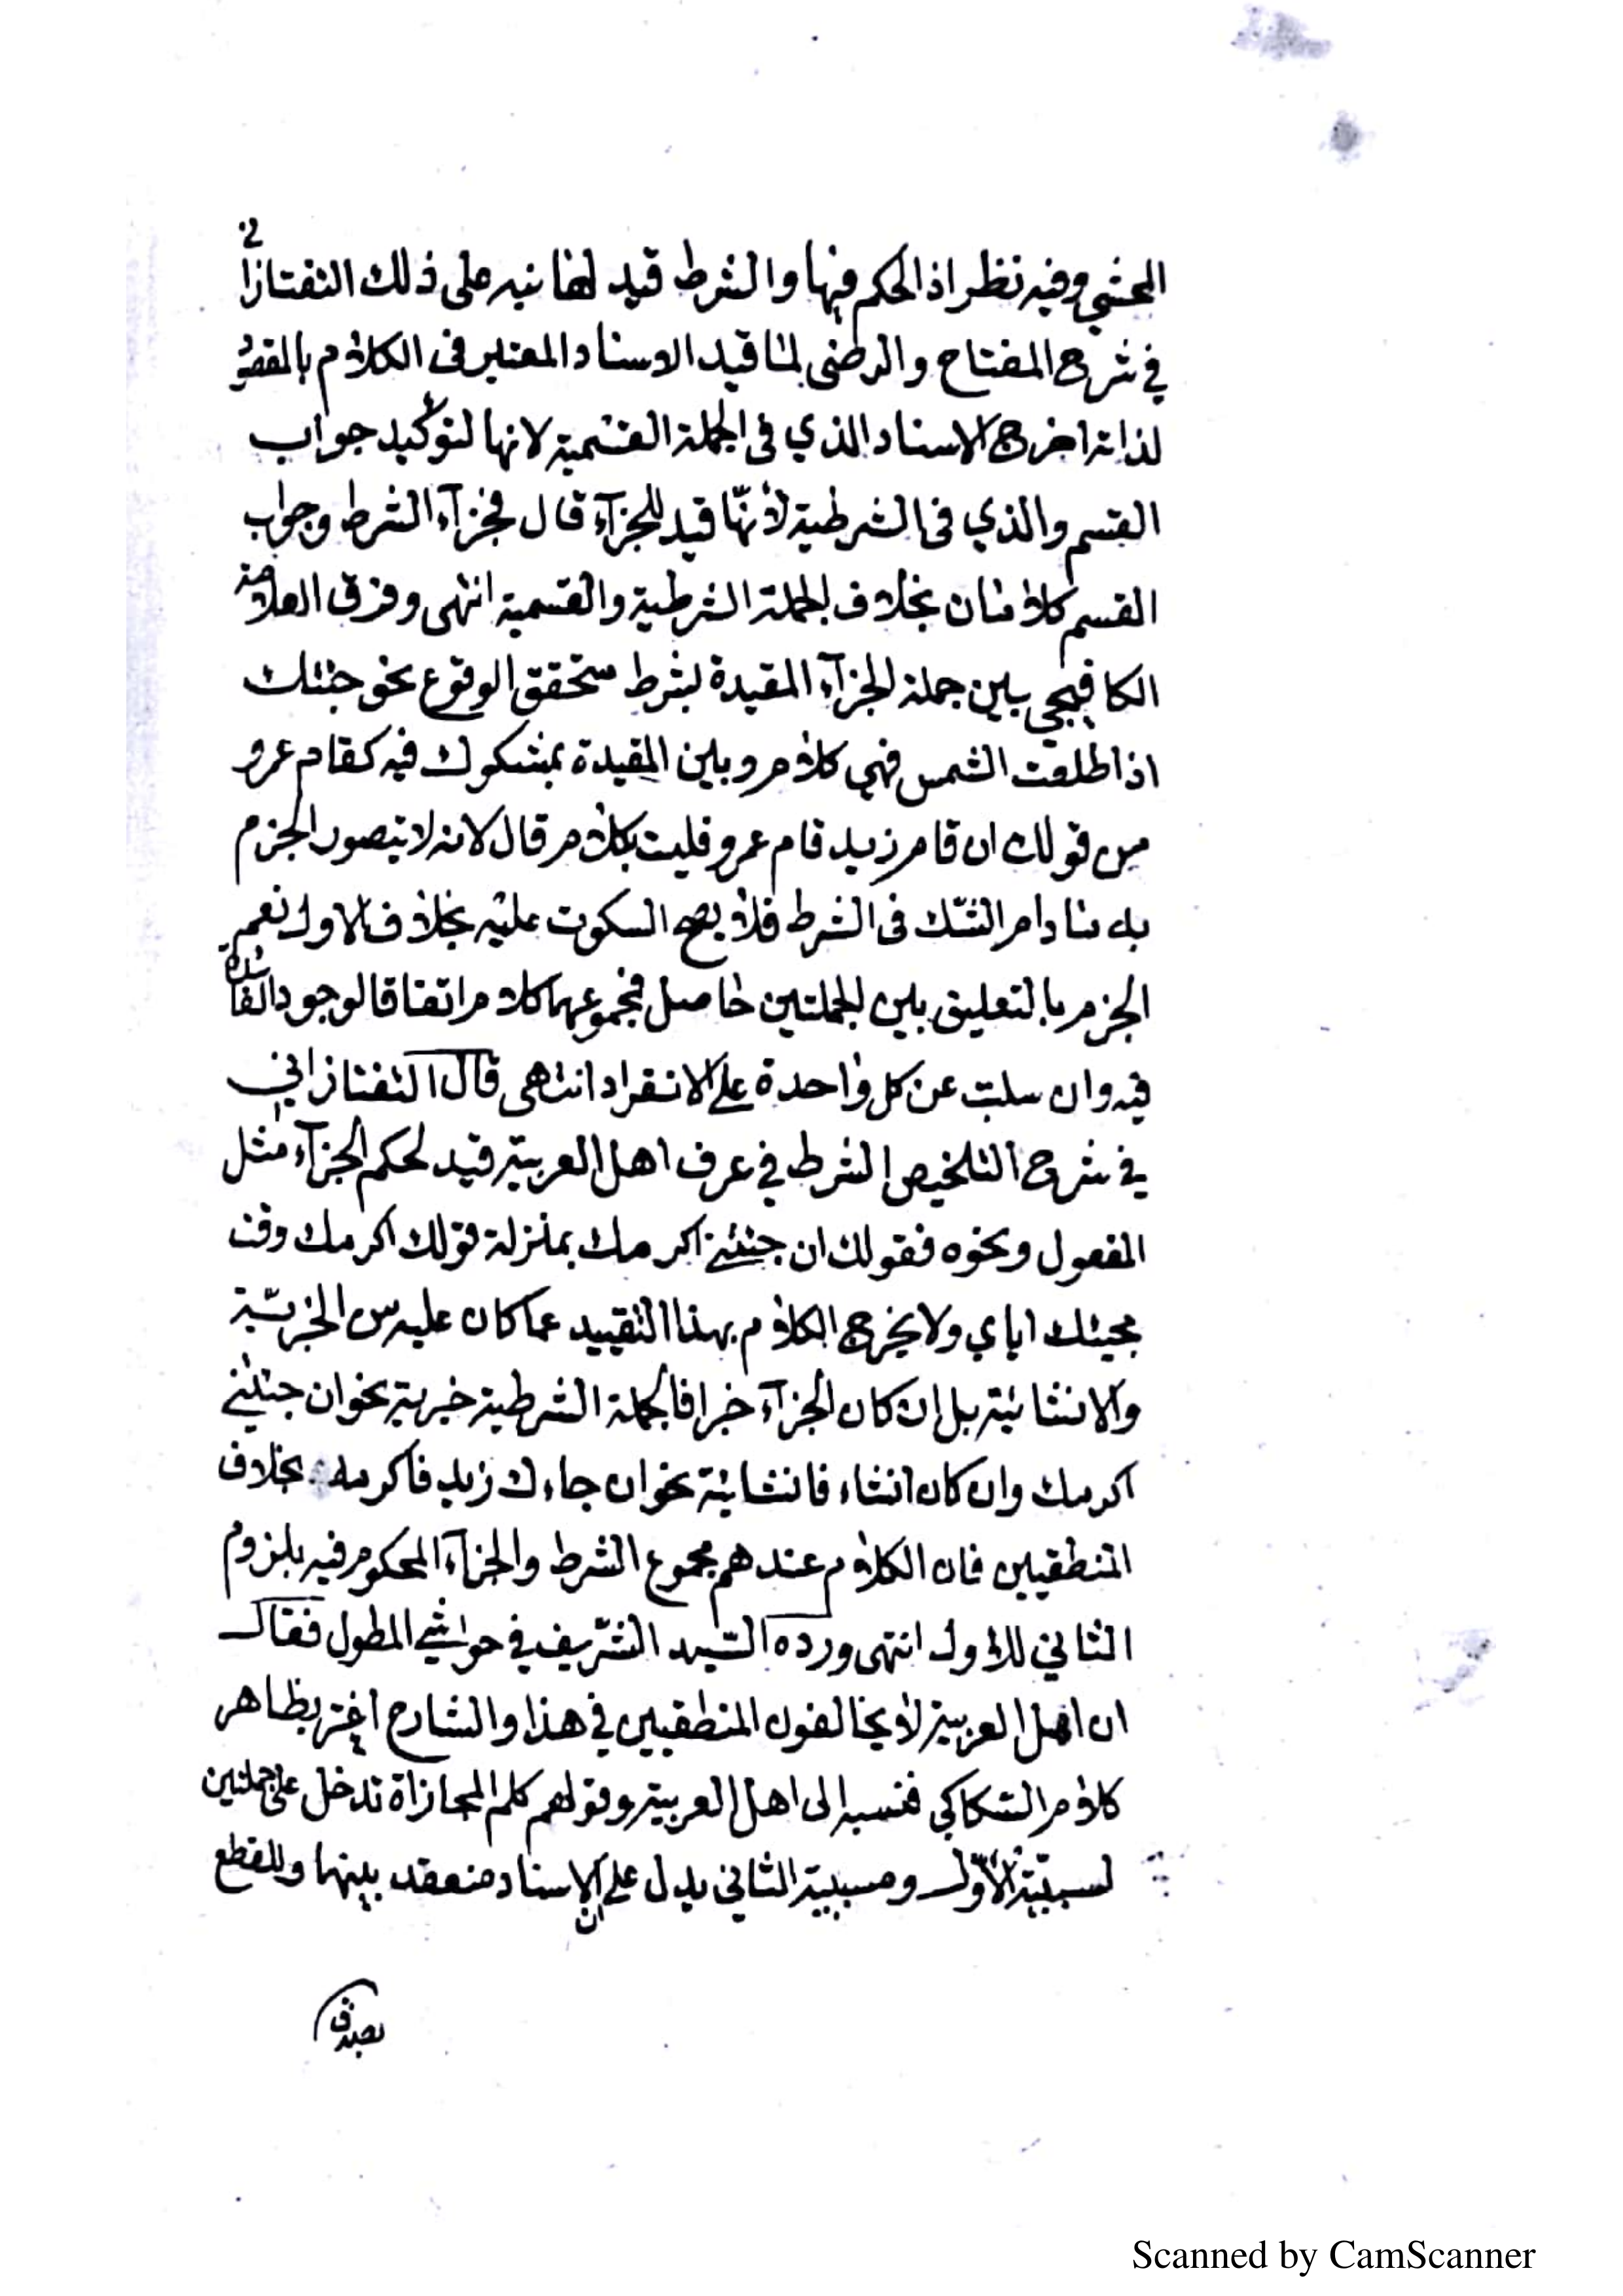 المحشي وفيه نظر اذ الحكم فيها والشرط قيد لها نبه على ذلك التفتازاني
في شرح المفتاح والرضى لما قيد الاسناد المعتبر فى الكلام بالمقصود
لذاته اخرج الاسناد الذي فى الجملة القسمية لانها لتوكيد جواب
القسم والذي فى الشرطية لأنّها قيد للجزآء قال فجزآء الشرط وجواب
القسم كلامان بخلاف الجملة الشرطية والقسمية انتهى وفرق العلامة
الكافيجي بين جملة الجزآء المقيدة بشرط متحقق الوقوع نحو جئتك
اذا طلعت الشمس فهي كلام وبين المقيدة بمشكوك فيه كقام عمرو
من قولك ان قام زيد قام عمرو فليت بكلام قال لانه لا يتصور الجزم
به ما دام الشك فى الشرط فلا يصح السكوت عليه بخلاف الاول نعم
الجزم بالتعليق بين الجملتين حاصل فمجموعهما كلام اتفاقا لوجود الفائدة
فيه وان سلبت عن كل واحدة على الانفراد انتهى قال التفتازاني
في شرح التلخيص الشرط في عرف اهل العربية قيد لحكم الجزآء مثل
المفعول ونحوه فقولك ان جئتني اكرمك بمنزلة قولك اكرمك وقت
مجيئك اياي ولا يخرج الكلام بهذا التقييد عما كان عليه من الخبريّة
والانشائية بل ان كان الجزآء خبرا فالجملة الشرطية خبرية نحو ان جئتني
اكرمك وان كان انشاء فانشائية نحو ان جاءك زيد فاكرمه بخلاف
المنطقيين فان الكلام عندهم مجموع الشرط والجزآء المحكوم فيه بلزوم
الثاني للاول انتهى ورده السّيد الشّريف في حواشي المطول فقال
ان اهل العربية لا يخالفون المنطقيين في هذا والشارح اغتر بظاهر
كلام السّكاكي فنسبه الى اهل العربية وقولهم كلم المجازاة تدخل على جملتين
لسببيّة الأوّل ومسببية الثاني يدل على ان الاسناد منعقد بينهما وللقطع
بصدق
Scanned by CamScanner